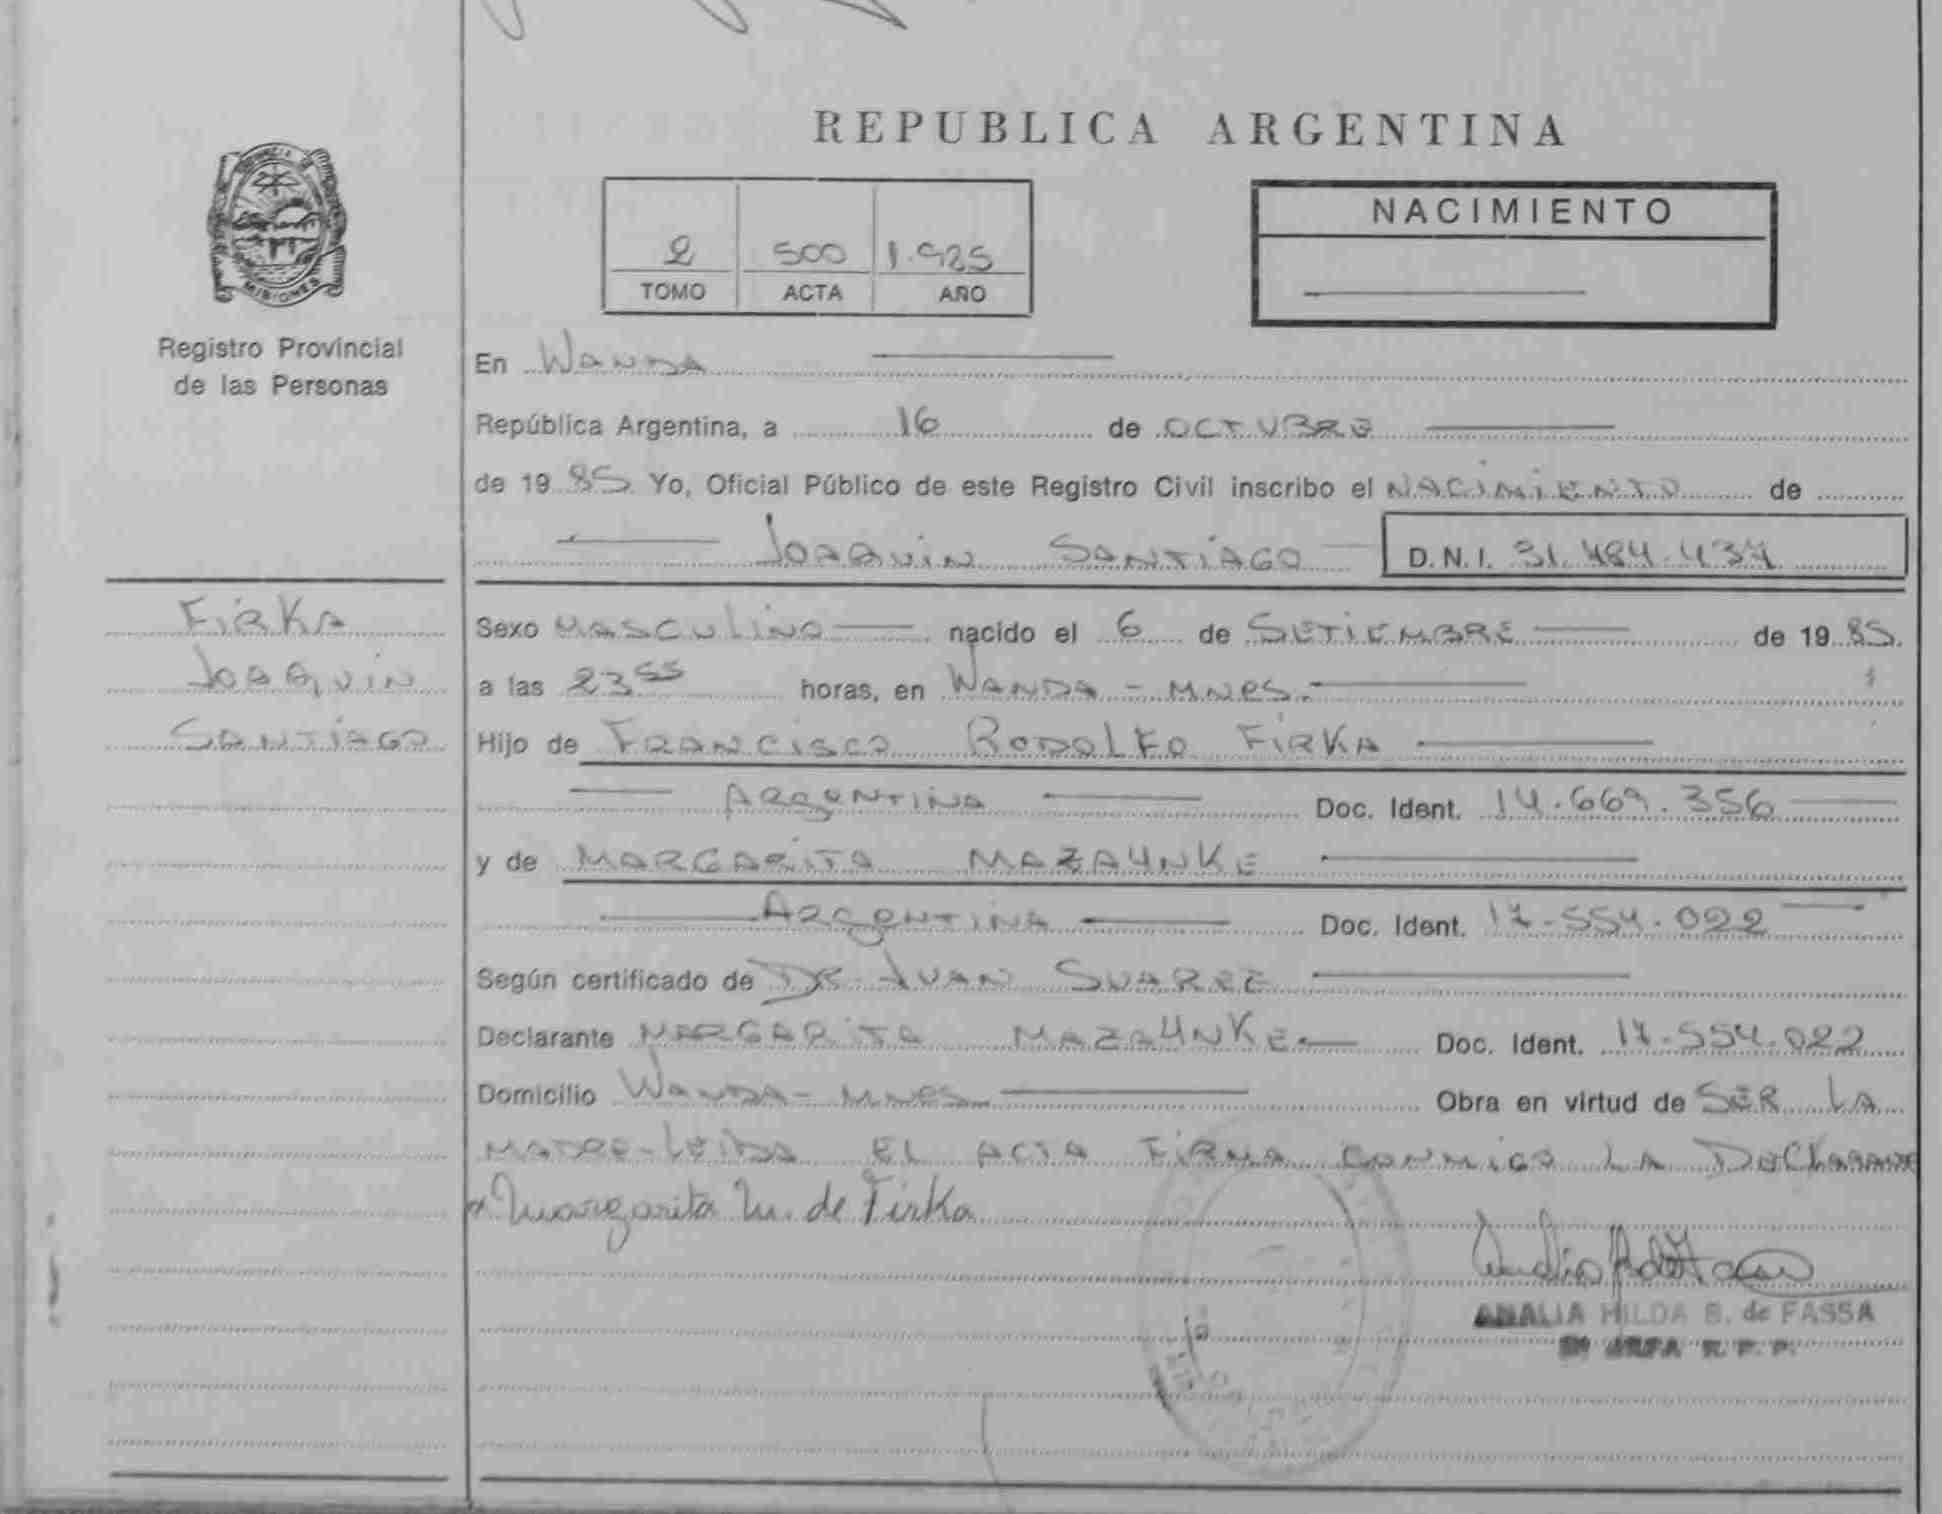 REPUBLICA ARGENTINA
PROVINCIA DE
MISIONES
Registro Provincial
de las Personas
2 500 1.985
TOMO ACTA AÑO
NACIMIENTO
En Wanda
República Argentina, a 16 de OCTUBRE
de 19 85 Yo, Oficial Público de este Registro Civil inscribo el NACIMIENTO de
JOAQUIN SANTIAGO D.N.I. 31.484.437
FIRKA
JOAQUIN
SANTIAGO
Sexo MASCULINO nacido el 6 de SETIEMBRE de 19 85
a las 23 55 horas, en WANDA - MNES.
Hijo de FRANCISCO RODOLFO FIRKA
ARGENTINA Doc. Ident. 14.669.356
y de MARGARITA MAZAUNKE
ARGENTINA Doc. Ident. 17.554.022
Según certificado de DR. JUAN SUAREZ
Declarante MARGARITA MAZAUNKE Doc. Ident. 17.554.022
Domicilio WANDA - MNES Obra en virtud de SER LA
MADRE - LEIDA EL ACTA FIRMA CONMIGO LA DECLARANTE
Margarita M. de Firka
ANALIA HILDA B. de FASSA
JEFA R. P. P.